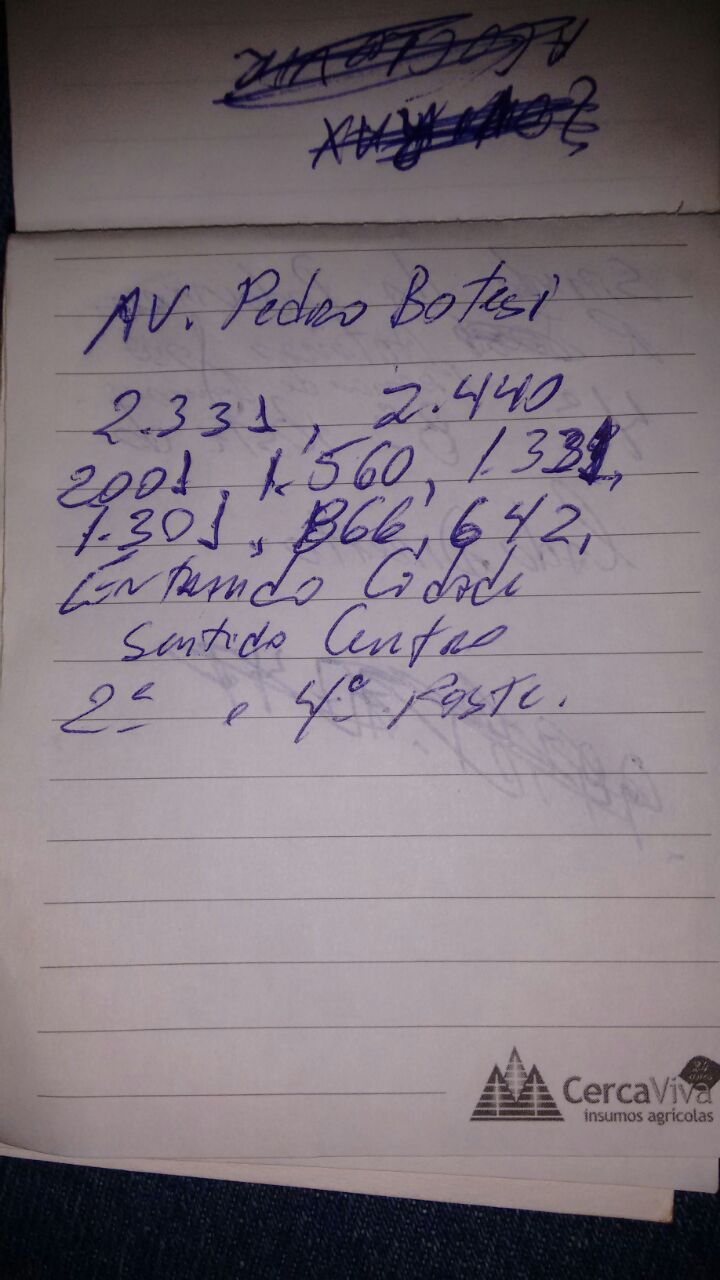 AV. Pedro Botesi
2.331, 2.440
2001, 1.560, 1.331,
1.301, 866, 642,
Entrando Cidade
Sentido Centro
2º e 4º Poste.
24 anos
CercaViva
insumos agrícolas